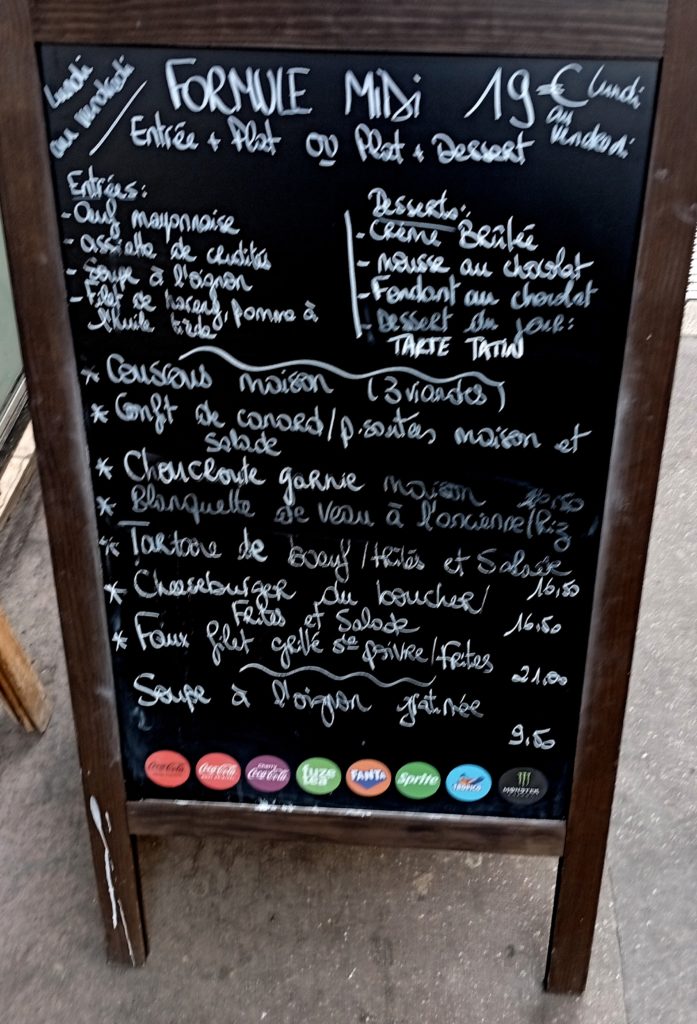 Lundi
au vendredi
FORMULE MIDI 19 €
Lundi
au
vendredi
Entrée + Plat OU Plat + Dessert
Entrées:
- Œuf mayonnaise
- assiette de crudités
- Soupe à l'oignon
- Filet de hareng, pomme à
l'huile tiède
Desserts:
- Crème Brûlée
- mousse au chocolat
- Fondant au chocolat
- Dessert du jour:
TARTE TATIN
* Couscous maison (3 viandes)
* Confit de canard/p. sautées maison et
salade
* Choucroute garnie maison
* Blanquette de veau à l'ancienne/Riz
* Tartare de boeuf/frites et Salade
16,50
* Cheeseburger du boucher/
Frites et Salade
16.50
* Faux filet grillé sce poivre/frites
21,00
Soupe à l'oignon gratinée
9,50
Coca-Cola
Coca-Cola
Cherry
Coca-Cola
fuze
tea
FANTA
Sprite
TROPICO
MONSTER